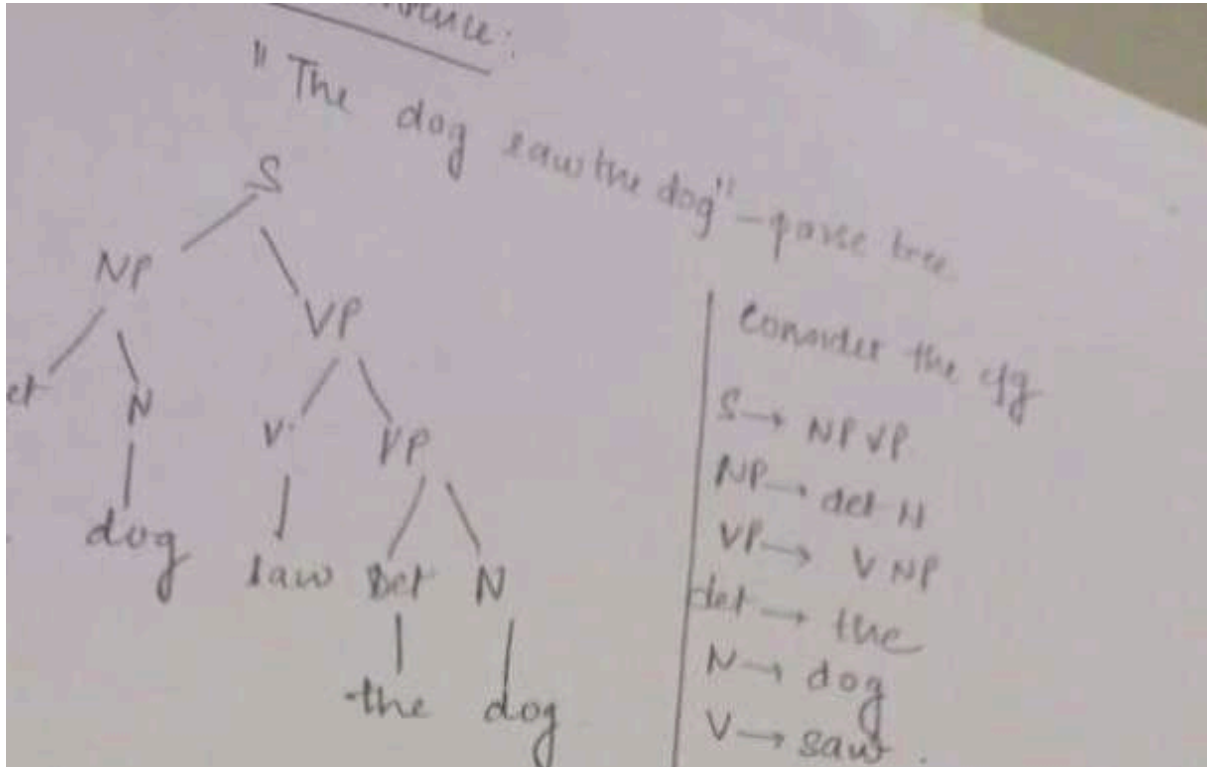 "The dog saw the dog" - parse tree.
S
NP VP
et N V VP
dog saw Det N
the dog
Consider the cfg
S → NP VP
NP → det N
VP → V NP
det → the
N → dog
V → saw.